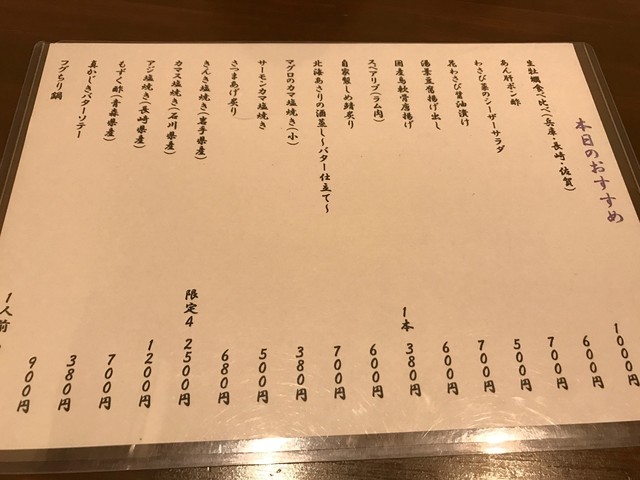 本日のおすすめ
生牡蠣食べ比べ(兵庫・長崎・佐賀) 1000円
あん肝ポン酢 600円
わさび菜のシーザーサラダ 700円
花わさび醤油漬け 500円
湯葉豆腐揚げ出し 700円
国産鳥軟骨唐揚げ 600円
スペアリブ(ラム肉) 1本 380円
自家製しめ鯖炙り 600円
北海あさりの酒蒸し～バター仕立て～ 700円
マグロのカマ塩焼き(小) 380円
サーモンカマ塩焼き 500円
さつまあげ炙り 680円
きんき塩焼き(岩手県産) 限定4 2500円
カマス塩焼き(石川県産) 1200円
アジ塩焼き(長崎県産) 700円
もずく酢(青森県産) 380円
真かじきバターソテー 900円
フグちり鍋 1人前